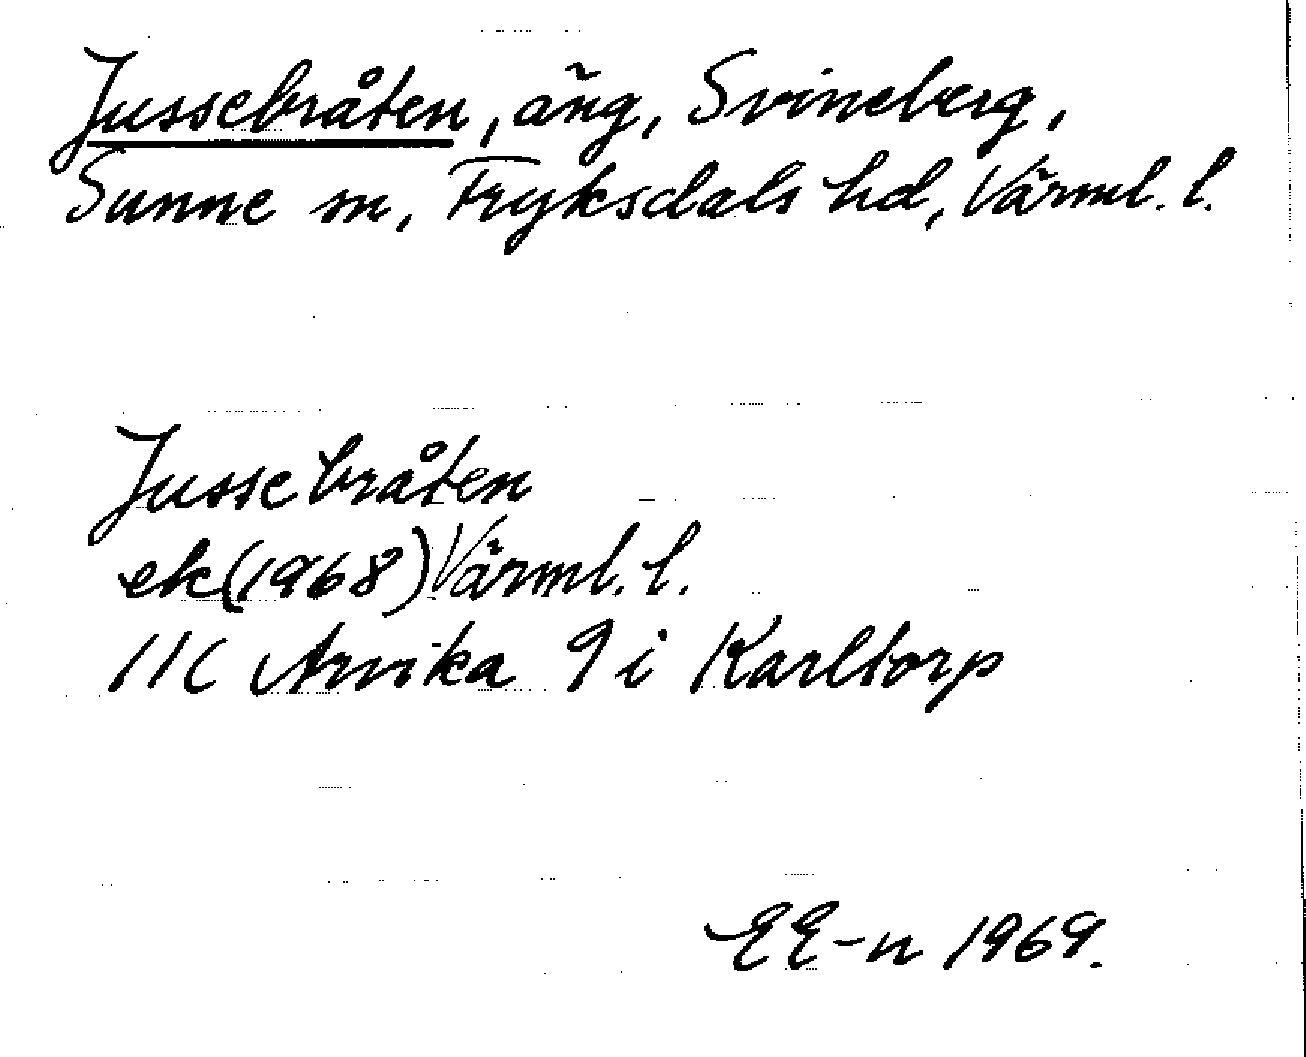 Jussebråten, äng, Svineberg,
Sunne sn, Fryksdals hd, Värml. l.
Jussebråten
ek (1968) Värml. l.
11C Arvika 9 i Karltorp
EE-n 1969.